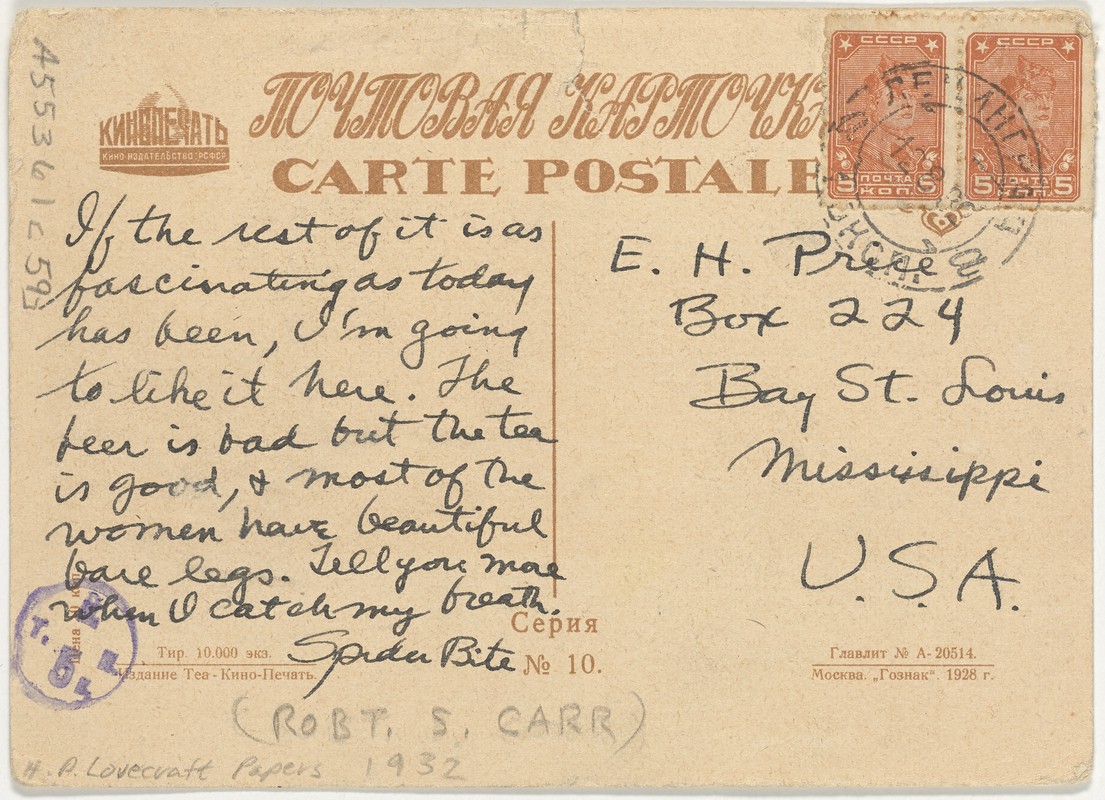 A55361c59
ПОЧТОВАЯ КАРТОЧКА
CARTE POSTALE
КИНОПЕЧАТЬ
КИНО-ИЗДАТЕЛЬСТВО РСФСР
СССР
ПОЧТА
5 КОП. 5
СССР
ПОЧТА
5 КОП. 5
If the rest of it is as
fascinating as today
has been, I'm going
to like it here. The
beer is bad but the tea
is good, & most of the
women have beautiful
bare legs. Tell you more
when I catch my breath.
Spider Bite
E. H. Price
Box 224
Bay St. Louis
Mississippi
U.S.A.
Цена
Тир. 10.000 экз.
Издание Теа-Кино-Печать.
Серия
№ 10.
Главлит № А-20514.
Москва. „Гознак". 1928 г.
(ROBT. S. CARR)
H. P. Lovecraft Papers 1932